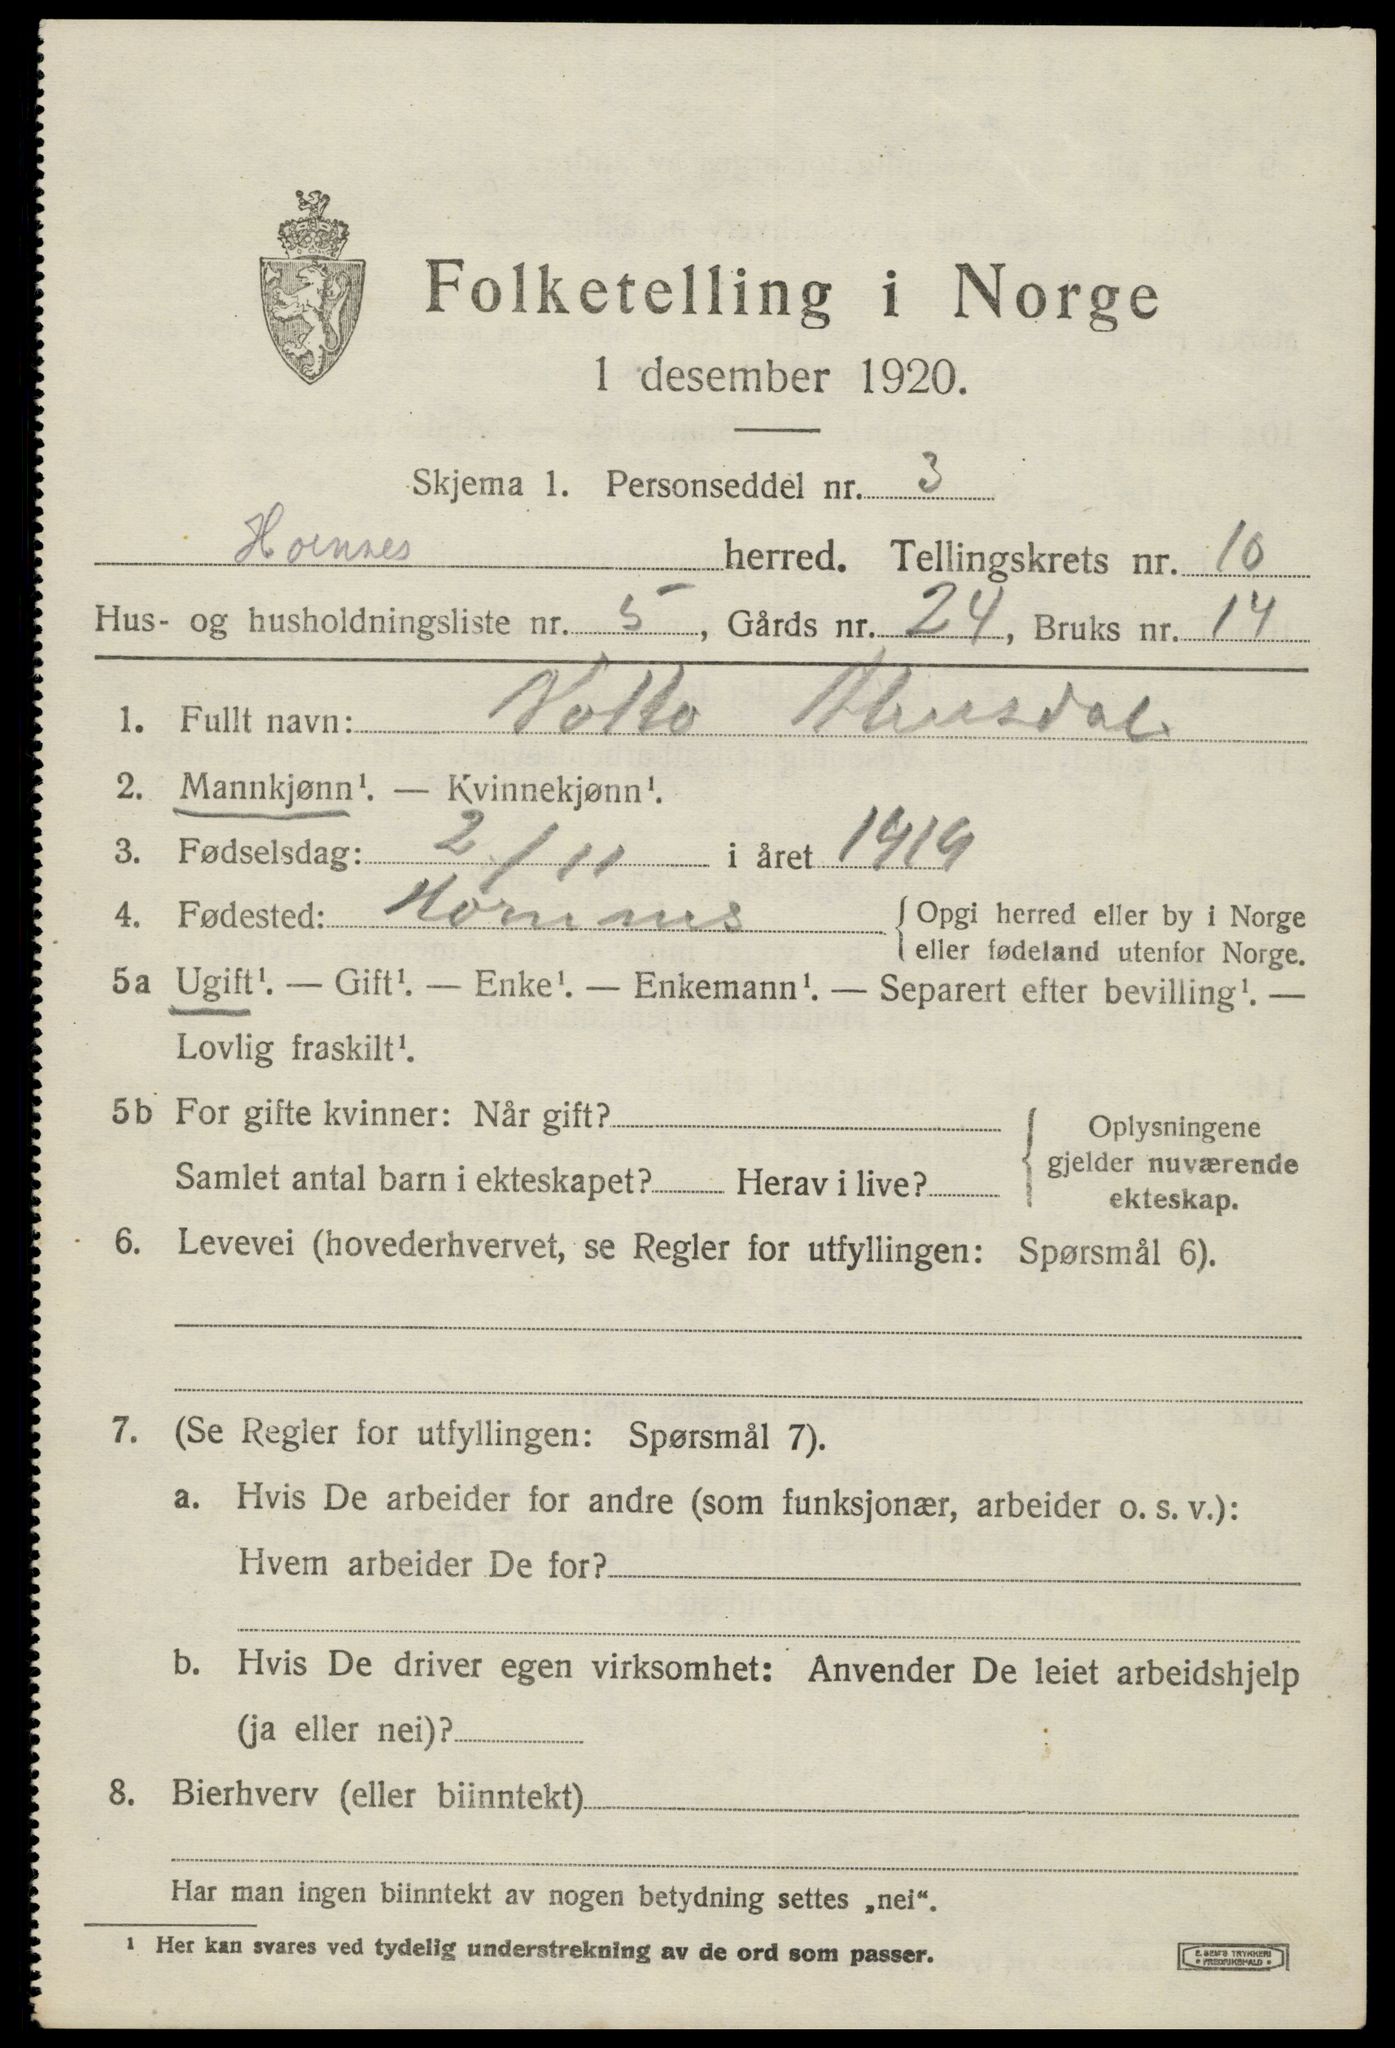 Folketelling i Norge
1 desember 1920.
Skjema 1. Personseddel nr. 3
Hornnes herred. Tellingskrets nr. 10
Hus- og husholdningsliste nr. 5, Gårds nr. 24, Bruks nr. 14
1. Fullt navn:
2. Mannkjønn¹. — Kvinnekjønn¹.
3. Fødselsdag: 2/11 i året 1919
4. Fødested: Hornnes { Opgi herred eller by i Norge
eller fødeland utenfor Norge.
5a Ugift¹. — Gift¹. — Enke¹. — Enkemann¹. — Separert efter bevilling¹. —
Lovlig fraskilt¹.
5b For gifte kvinner: Når gift?
Samlet antal barn i ekteskapet? Herav i live?
{ Oplysningene
gjelder nuværende
ekteskap.
6. Levevei (hovederhvervet, se Regler for utfyllingen: Spørsmål 6).
7. (Se Regler for utfyllingen: Spørsmål 7).
a. Hvis De arbeider for andre (som funksjonær, arbeider o. s. v.):
Hvem arbeider De for?
b. Hvis De driver egen virksomhet: Anvender De leiet arbeidshjelp
(ja eller nei)?
8. Bierhverv (eller biinntekt)
Har man ingen biinntekt av nogen betydning settes „nei“.
¹ Her kan svares ved tydelig understrekning av de ord som passer.
E. SEM'S TRYKKERI
• FREDRIKSHALD •